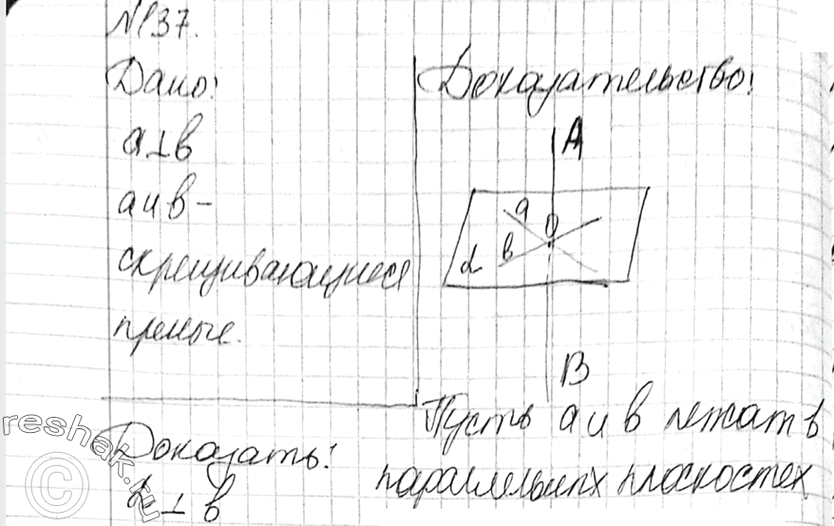 №137.
Дано:
a⊥b
a и b –
скрещивающиеся
прямые.
Доказать:
b⊥b
Доказательство:
A
a
O
b
α
B
Пусть a и b лежат в
параллельных плоскостях
reshak.ru